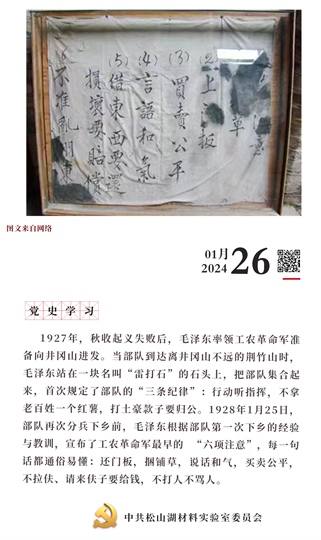 草
(2)上门板
(3)買賣公平
(4)言語和氣
(5)借東西要還
損壞要賠償
不准亂
图文来自网络
01月
2024
26
党史学习
1927年，秋收起义失败后，毛泽东率领工农革命军准
备向井冈山进发。当部队到达离井冈山不远的荆竹山时，
毛泽东站在一块名叫“雷打石”的石头上，把部队集合起
来，首次规定了部队的“三条纪律”：行动听指挥，不拿
老百姓一个红薯，打土豪款子要归公。1928年1月25日，
部队再次分兵下乡前，毛泽东根据部队第一次下乡的经验
与教训，宣布了工农革命军最早的 “六项注意”，每一句
话都通俗易懂：还门板，捆铺草，说话和气，买卖公平，
不拉伕、请来伕子要给钱，不打人不骂人。
中共松山湖材料实验室委员会